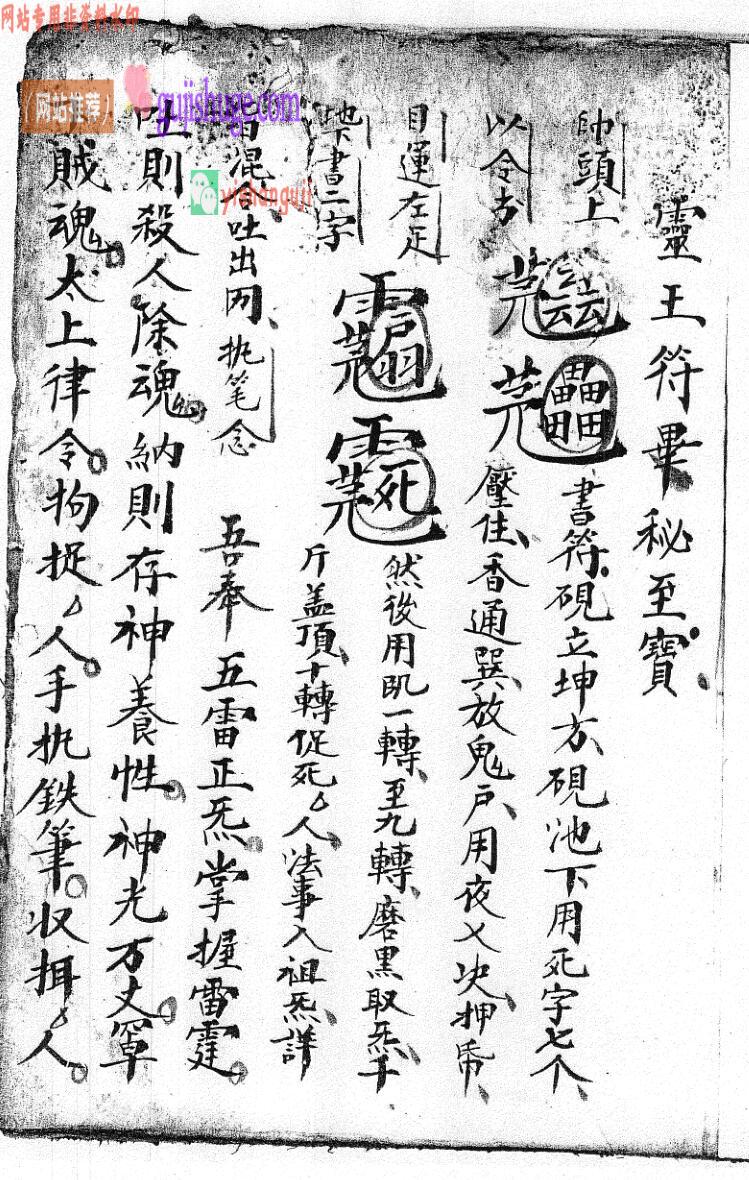 网站专用非资料水印
（网站推荐）
gujishuge.com
yishanguji
靈王符畢秘至寶、
帅頭上
書符。硯立坤方、硯池下用死字七个、
以令书
壓住、香通巽、放鬼戶、用夜乂决、押帋、
目運左足
然後用凯一轉、至九轉、磨黑取炁、千
書二字
斤盖頂、十轉促死厶人、法事入祖炁、詳
混吐出网、执笔念
吾奉五雷正炁、掌握雷霆。
則殺人除魂。納則存神養性。神光万丈。罩
賊魂。太上律令。拘捉厶人。手执鉄筆。收揖厶人。